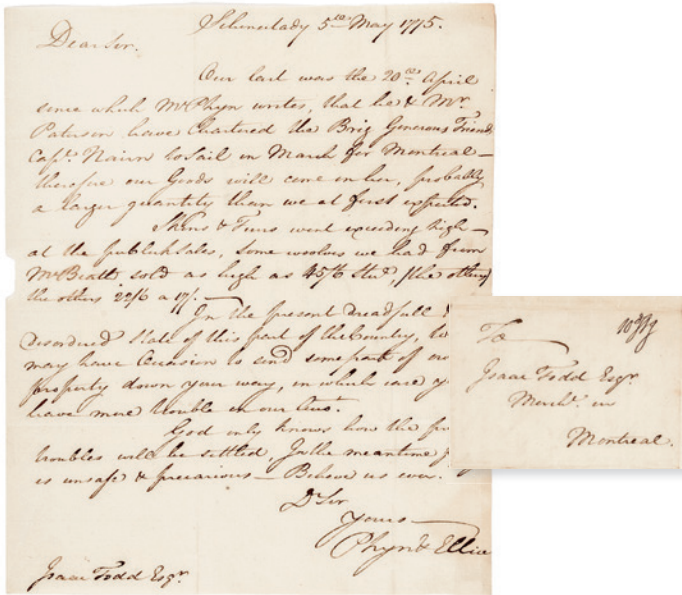 Schenectady 5th May 1775.
Dear Sir.
Our last was the 20th April
since which Mr Phyn writes, that he & Mr.
Paterson have Chartered the Brig Generous Friend
Capt. Nairn to sail in March for Montreal—
therefore our Goods will come in her, probably
a larger quantity than we at first expected.
Skins & Furrs went exceeding high—
at the publick sales, some woolves we had from
McBeath sold as high as 45/6 Ster,
the others 22/6 a 17/.—
In the present dreadfull &
disordered State of this part of the Country,
may have Occasion to send some part of
property down your way, in which case
have more trouble on our
God only knows how the
troubles will be settled, In the meantime
is unsafe & precarious — Believe us ever.
Dr Sir
Yours —
Phyn & Ellice
Isaac Todd Esqr
To
Isaac Todd Esqr.
Mercht. in
Montreal.